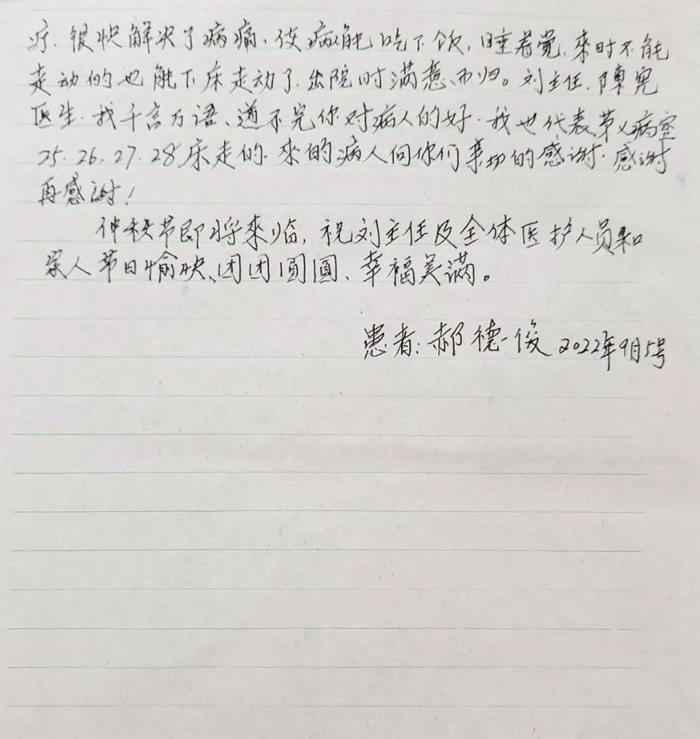 疗. 很快解决了病痛、使病人能吃下饮, 睡着觉, 来时不能
走动的也能下床走动了. 出院时满意而归。刘主任, 陳
医生. 我千言万语、道不完你对病人的好. 我也代表第乂病室
25. 26. 27. 28床走的. 來的病人向你们亲切的感谢. 感谢
再感谢!
仲秋节即将来临, 祝刘主任及全体医护人员和
家人节日愉快、团团圆圓、幸福美满。
患者: 郝德俊 2022年9月5号